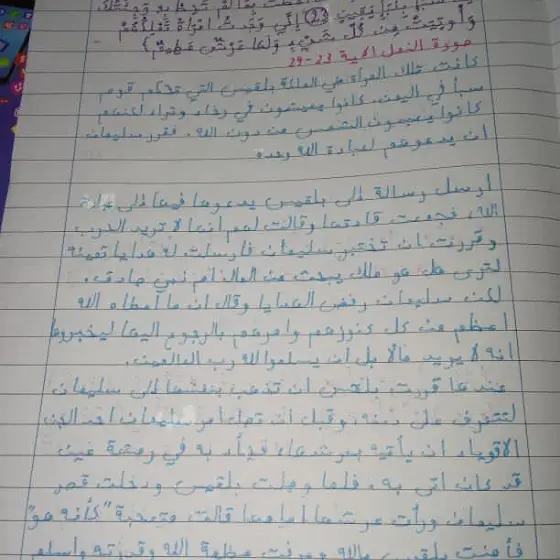 من سبإ بنبإ يقين (23) إني وجدت امرأة تملكهم
وأوتيت من كل شيء ولها عرش عظيم}
سورة النمل الآية 23-29
كانت تلك المرأة هي الملكة بلقيس التي تحكم قوم
سبأ في اليمن، كانوا يعيشون في رخاء وثراء لكنهم
كانوا يعبدون الشمس من دون الله، فقرر سليمان
ان يدعوهم لعبادة الله وحده
ارسل رسالة الى بلقيس يدعوها فيها الى عبادة
الله، فجمعت قادتها وقالت لهم انها لا تريد الحرب
وقررت ان تختبر سليمان فارسلت له هدايا ثمينة
لترى هل هو ملك يبحث عن المال ام نبي صادق.
لكن سليمان رفض الهدايا وقال ان ما اعطاه الله
اعظم من كل كنوزهم وامرهم بالرجوع اليها ليخبروها
انه لا يريد مالا بل ان يسلموا لله رب العالمين.
عندها قررت بلقيس ان تذهب بنفسها الى سليمان
لتتعرف على دينه، وقبل ان تصل امر سليمان احد الجن
الاقوياء ان يأتيه بعرشها، فجاء به في رمشة عين
قد كان اتى به، فلما وصلت بلقيس ودخلت قصر
سليمان ورأت عرشها امامها قالت متعجبة "كأنه هو"
فأمنت بلقيس بالله وعرفت عظمة الله وقدرته واسلم